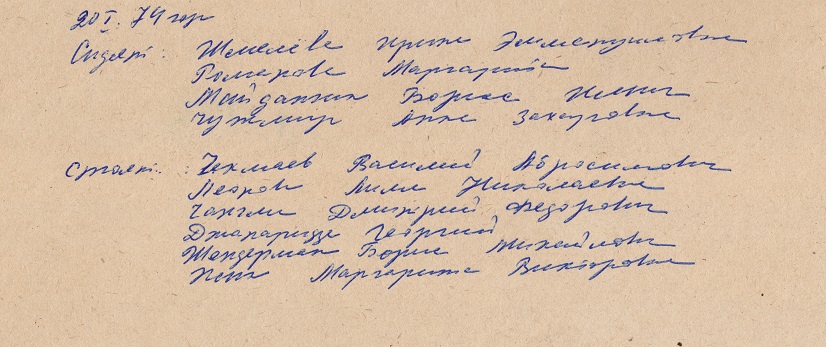 20 I. 74 год
Сидят: Шмелёва Ирина Эммануиловна
Романова Маргарита
Майданник Борис Ильич
Чужмир Анна Захаровна
Стоят: Чекмаев Василий Абросимович
Леонова Лилия Николаевна
Чангли Дмитрий Федорович
Джапаридзе Георгий
Шендерман Борис Михайлович
Маргарита Викторовна